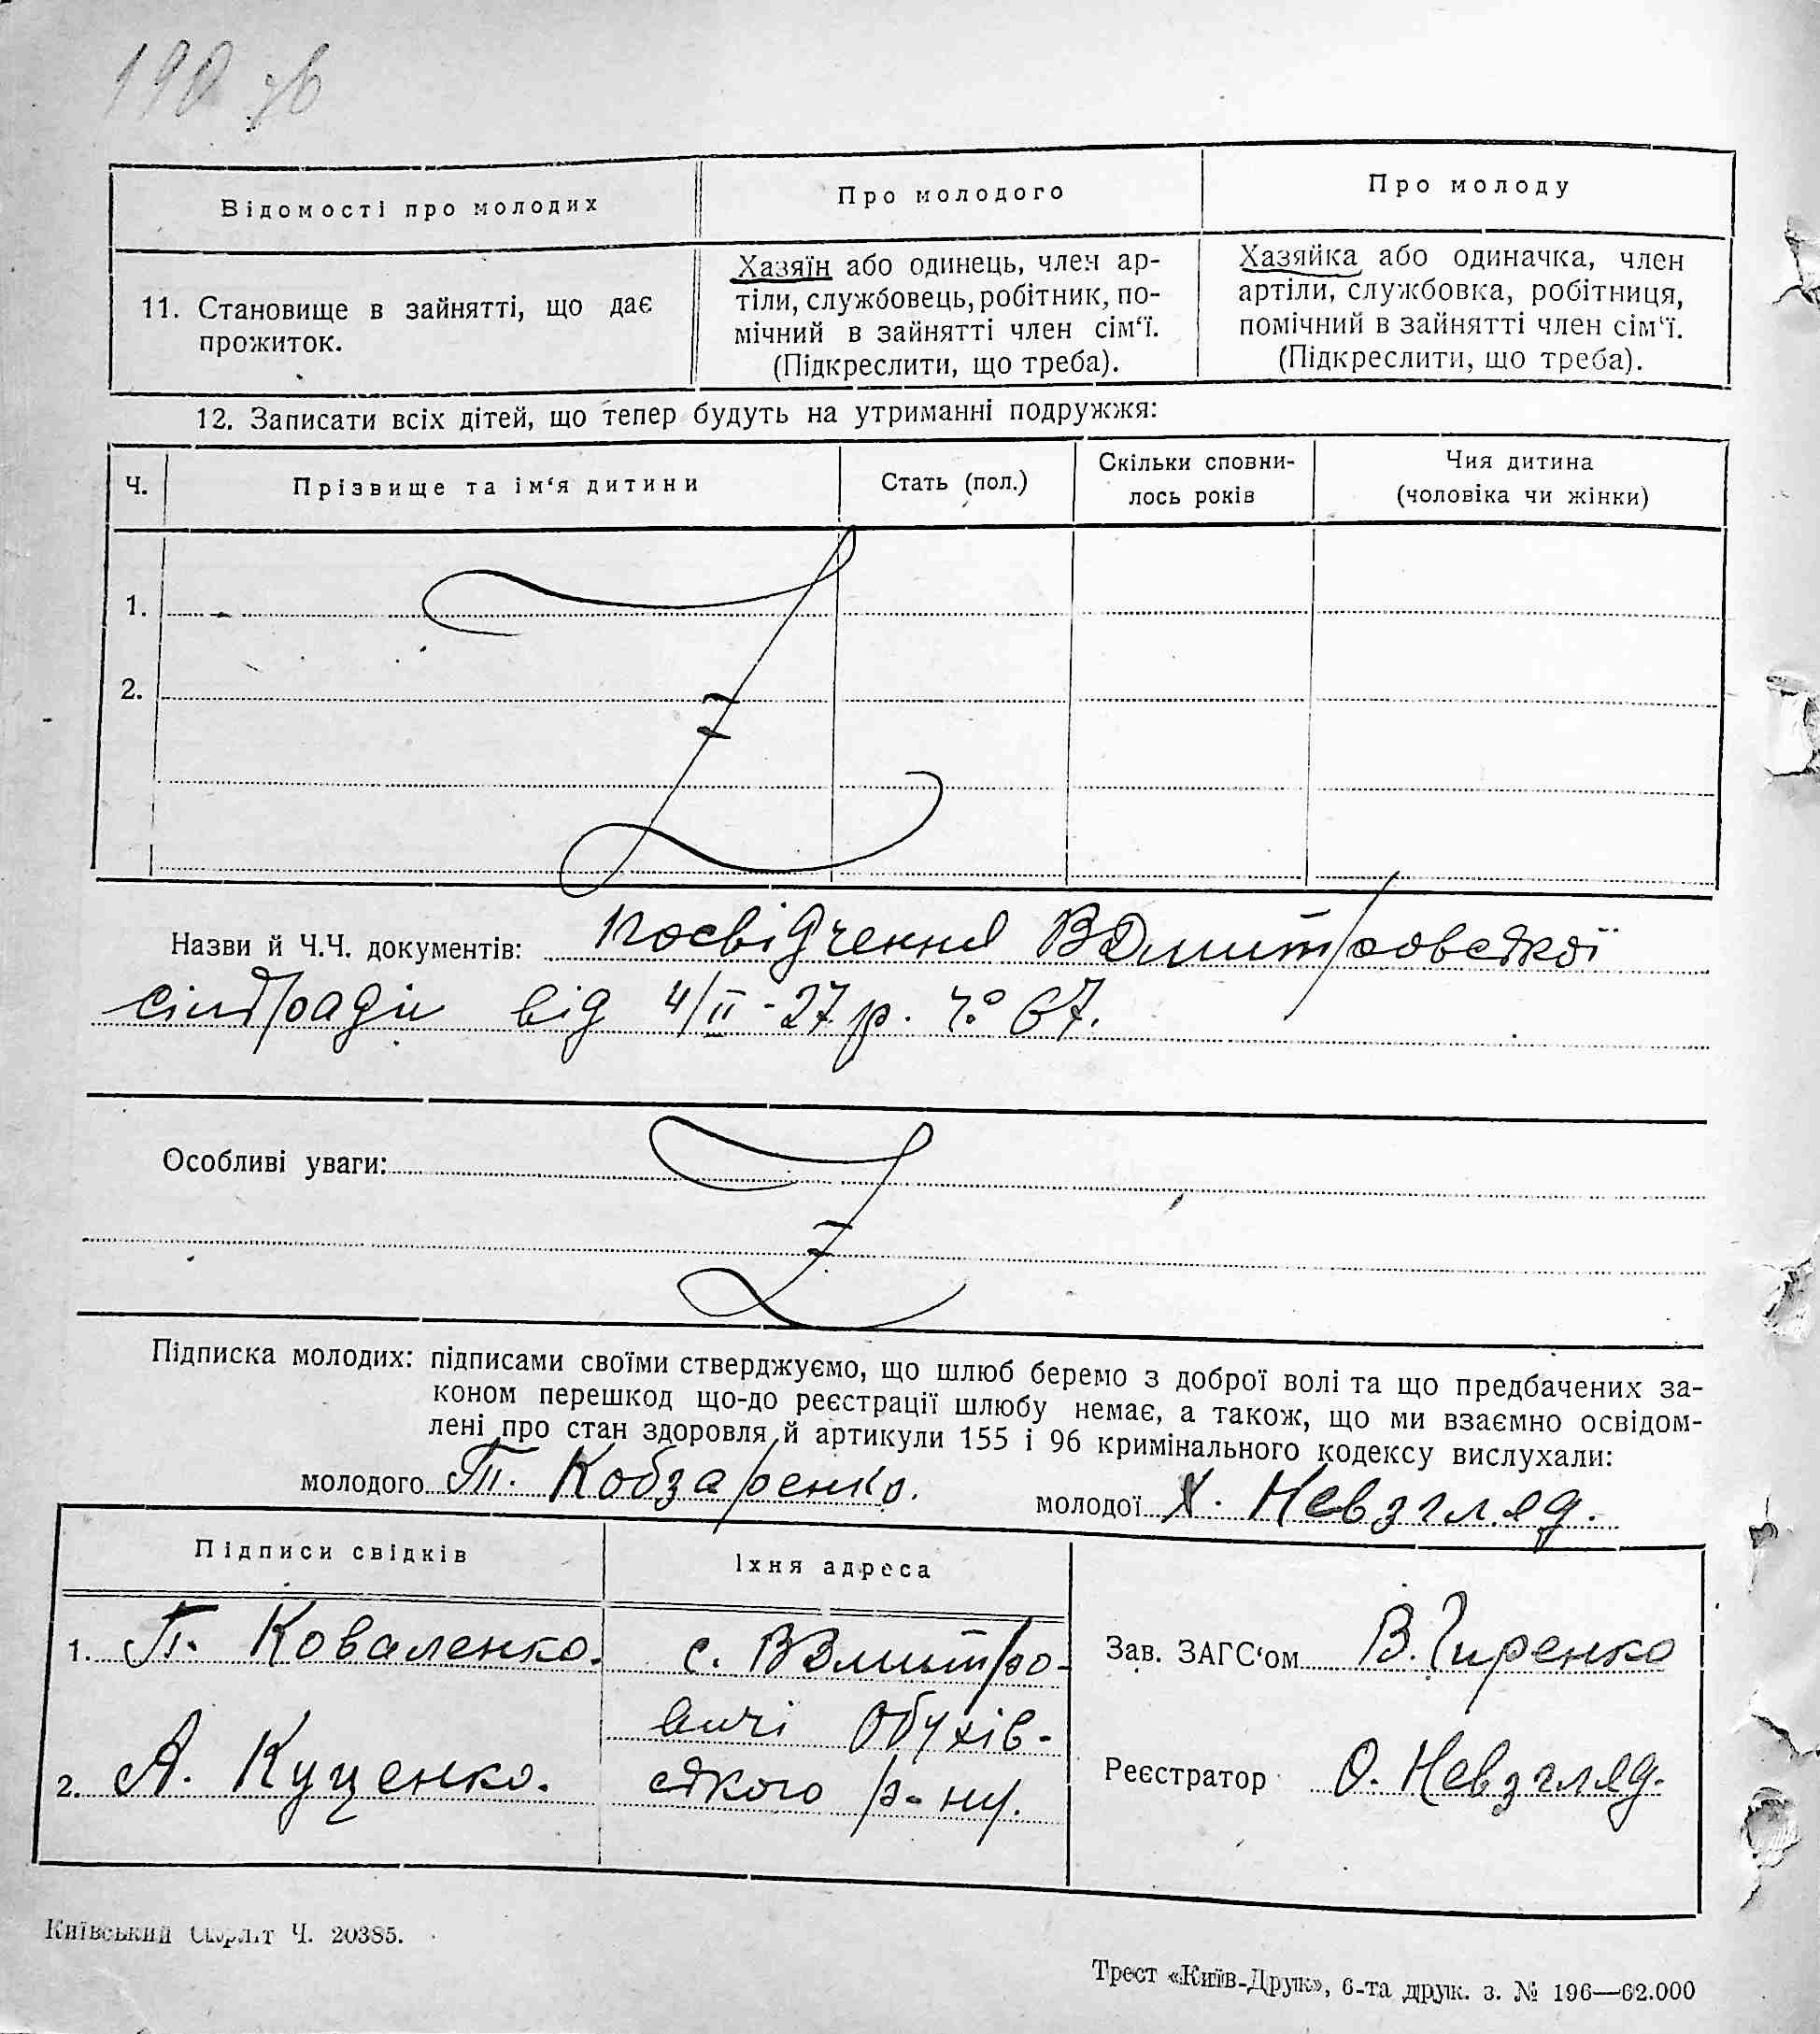 190 зв
Відомості про молодих
Про молодого
Про молоду
11. Становище в зайнятті, що дає
прожиток.
Хазяїн або одинець, член ар-
тіли, службовець, робітник, по-
мічний в зайнятті член сім‘ї.
(Підкреслити, що треба).
Хазяйка або одиначка, член
артіли, службовка, робітниця,
помічний в зайнятті член сім‘ї.
(Підкреслити, що треба).
12. Записати всіх дітей, що тепер будуть на утриманні подружжя:
Ч.
Прізвище та ім‘я дитини
Стать (пол.)
Скільки сповни-
лось років
Чия дитина
(чоловіка чи жінки)
1.
2.
Назви й Ч.Ч. документів: посвідчення ВДмитровської
сільради від 4/II-27 р. ч° 67.
Особливі уваги:
Підписка молодих: підписами своїми стверджуємо, що шлюб беремо з доброї волі та що предбачених за-
коном перешкод що-до реєстрації шлюбу немає, а також, що ми взаємно освідом-
лені про стан здоровля й артикули 155 і 96 кримінального кодексу вислухали:
молодого Т. Кобзаренко.
молодої Х. Невзгляд.
Підписи свідків
Їхня адреса
1. П. Коваленко.
с. ВДмитро-
вичі Обухів-
2. А. Куценко.
ського р-ну.
Зав. ЗАГС‘ом В. Гиренко
Реєстратор О. Невзгляд.
Київський Окрліт Ч. 20385.
Трест «Київ-Друк», 6-та друк. з. № 196—62.000